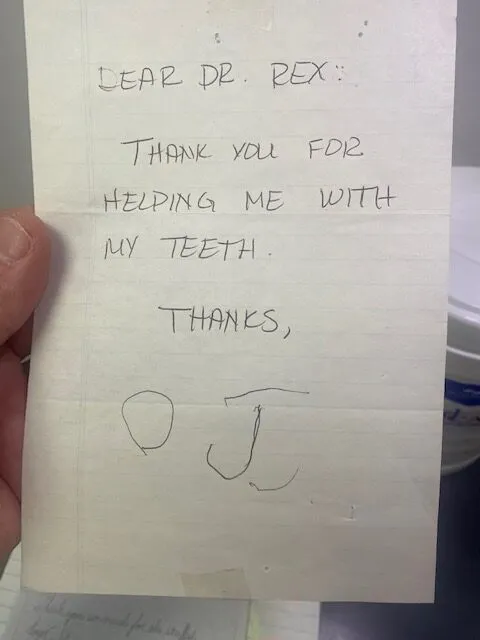 DEAR DR. REX:
THANK YOU FOR
HELPING ME WITH
MY TEETH.
THANKS,
OJ